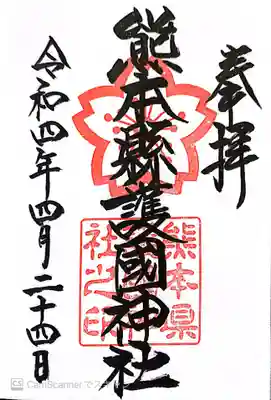 奉拝
熊本縣護國神社
令和四年四月二十四日
熊本県
社之印
CS CamScanner でスキャン